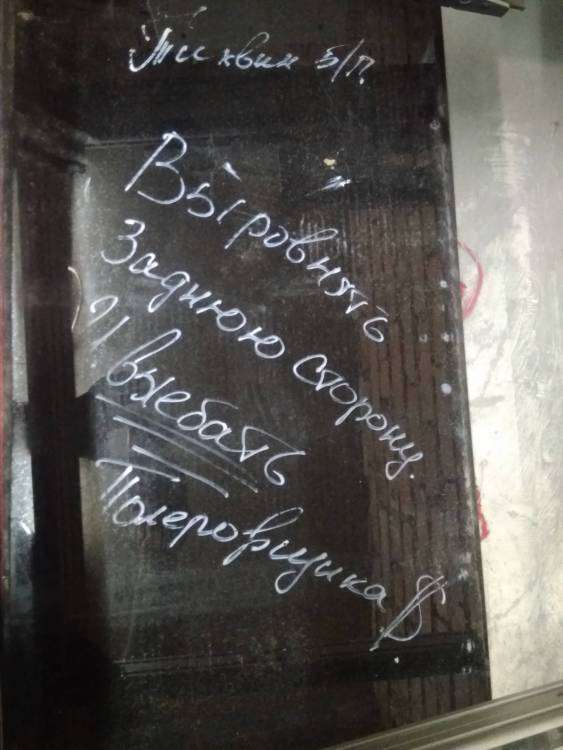 Тихвин б/п.
Выровнять
Заднюю сторону.
И выебать
Полеровщика